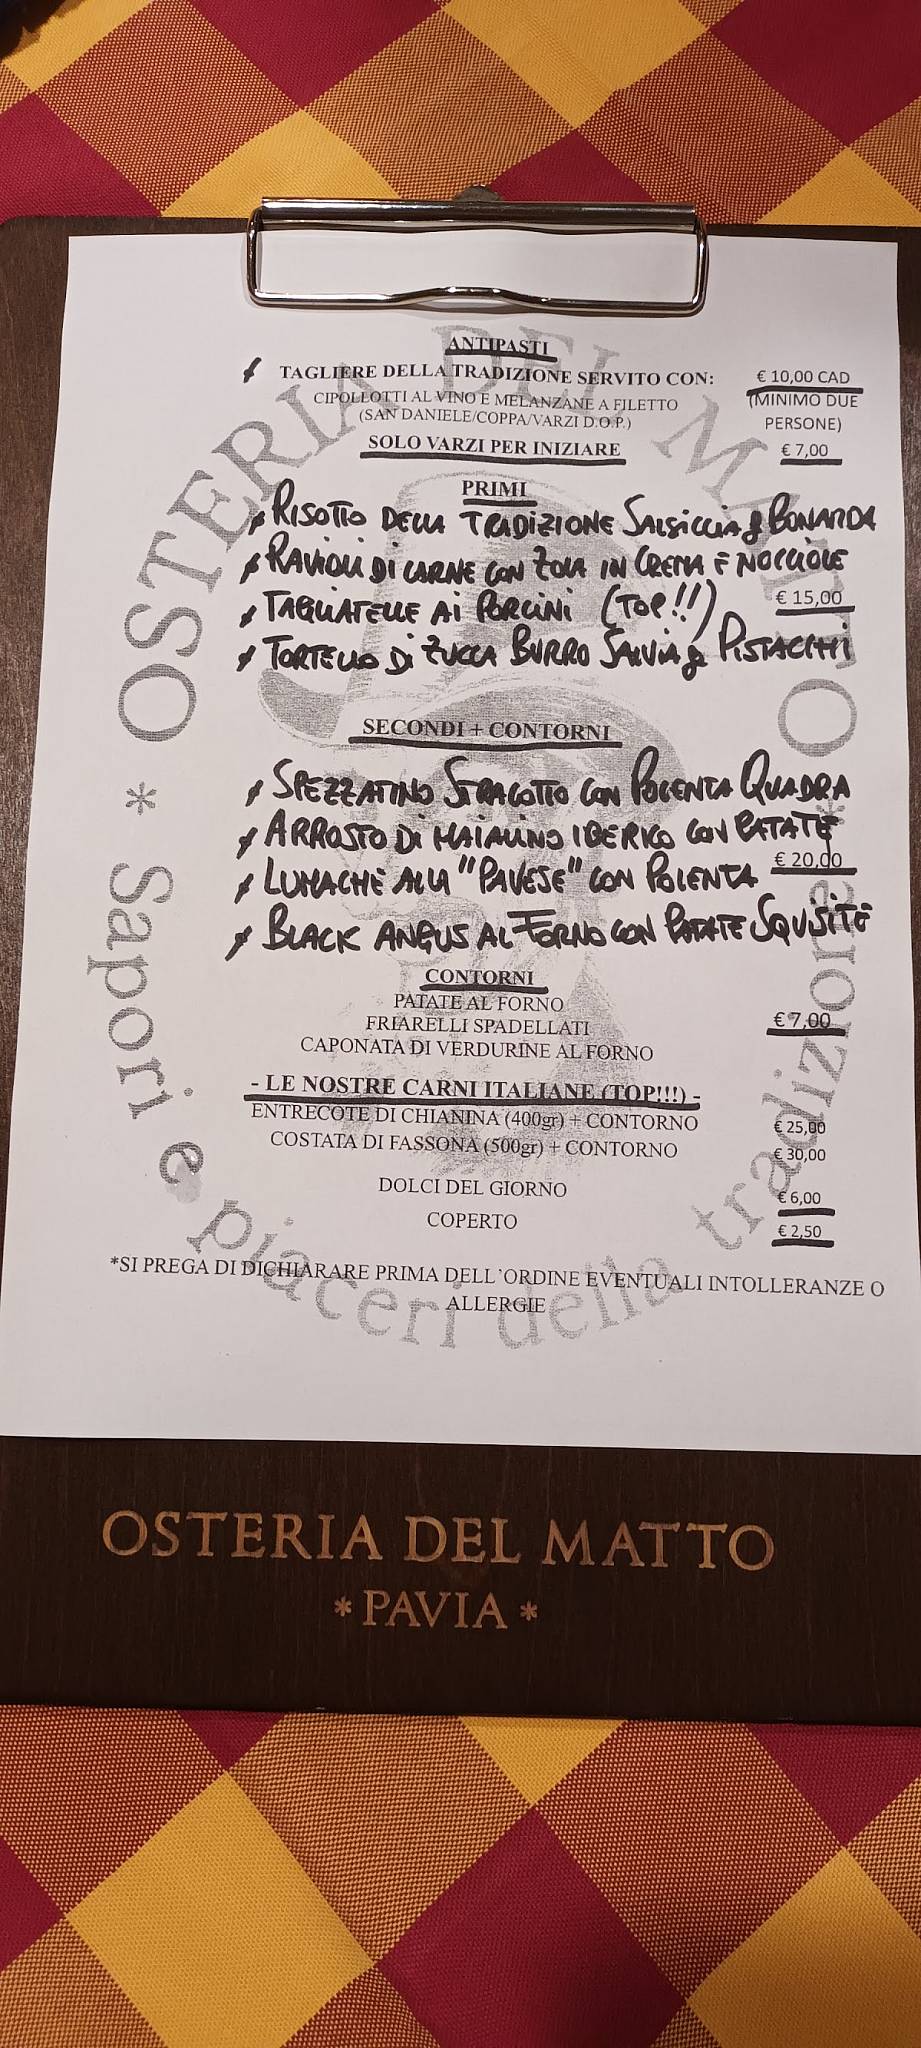 ANTIPASTI
TAGLIERE DELLA TRADIZIONE SERVITO CON: € 10,00 CAD
CIPOLLOTTI AL VINO E MELANZANE A FILETTO (MINIMO DUE
(SAN DANIELE/COPPA/VARZI D.O.P.) PERSONE)
SOLO VARZI PER INIZIARE € 7,00
PRIMI
RISOTTO DELLA TRADIZIONE SALSICCIA & BONARDA
RAVIOLI DI CARNE CON ZOLA IN CREMA E NOCCIOLE
€ 15,00
TAGLIATELLE AI PORCINI (TOP!!)
TORTELLO DI ZUCCA BURRO SALVIA & PISTACCHI
SECONDI + CONTORNI
SPEZZATINO STRACOTTO CON POLENTA QUADRA
ARROSTO DI MAIALINO IBERICO CON PATATE
€ 20,00
LUMACHE ALLA "PAVESE" CON POLENTA
BLACK ANGUS AL FORNO CON PATATE SQUISITE
CONTORNI
PATATE AL FORNO
FRIARELLI SPADELLATI € 7,00
CAPONATA DI VERDURINE AL FORNO
- LE NOSTRE CARNI ITALIANE (TOP!!!) -
ENTRECOTE DI CHIANINA (400gr) + CONTORNO € 25,00
COSTATA DI FASSONA (500gr) + CONTORNO € 30,00
DOLCI DEL GIORNO € 6,00
COPERTO € 2,50
*SI PREGA DI DICHIARARE PRIMA DELL'ORDINE EVENTUALI INTOLLERANZE O
ALLERGIE
OSTERIA DEL MATTO
* Sapori e piaceri della tradizione *
OSTERIA DEL MATTO
* PAVIA *